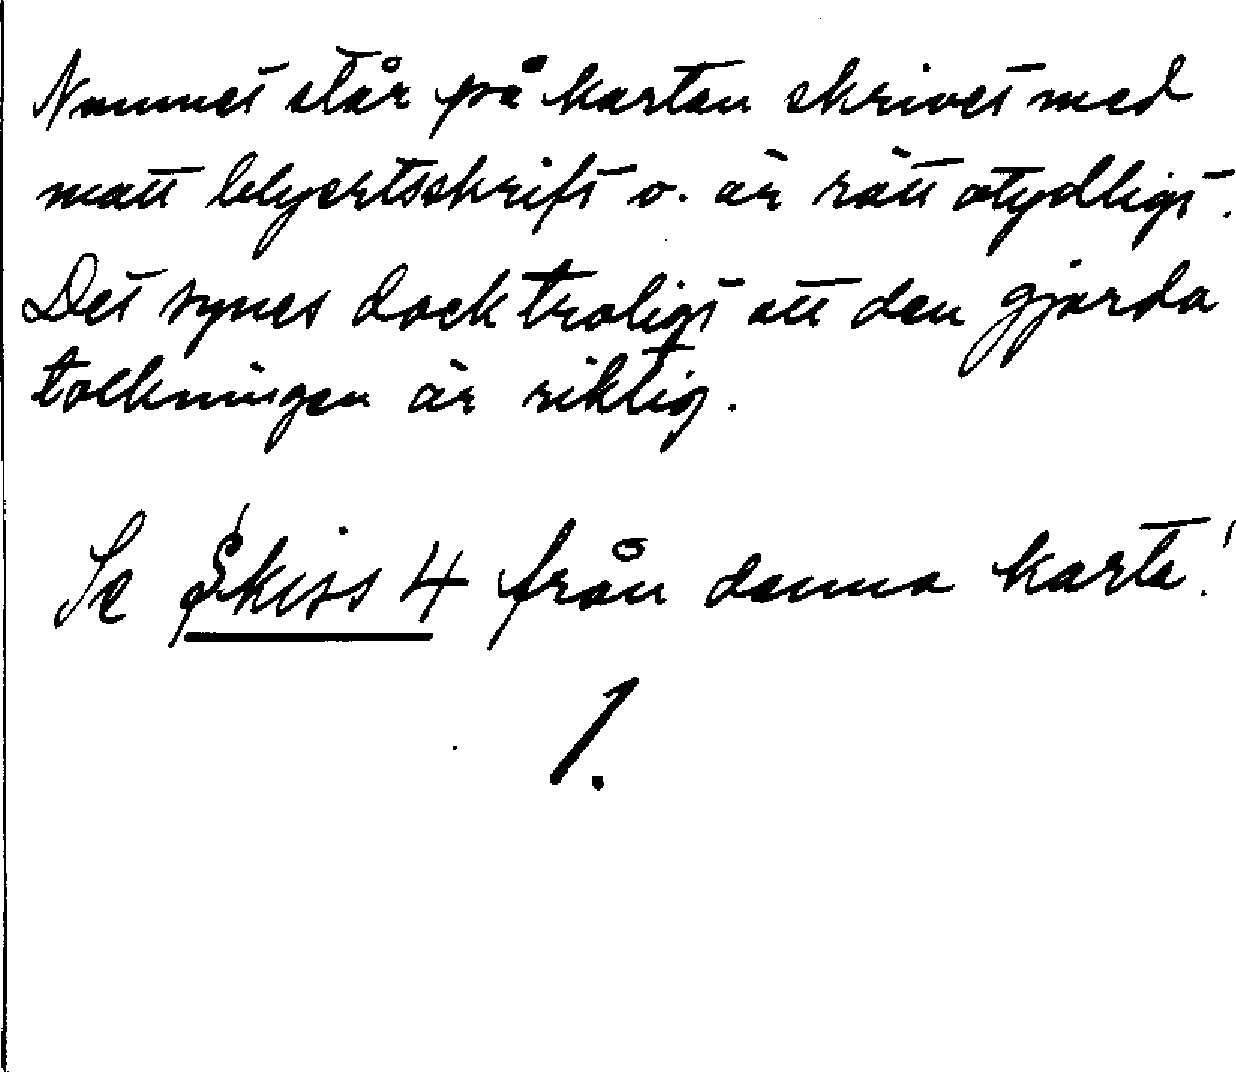 Namnet står på kartan skrivet med
matt blyertsskrift o. är rätt otydligt.
Det synes dock troligt att den gjorda
tolkningen är riktig.
Se Skiss 4 från denna karta!
1.